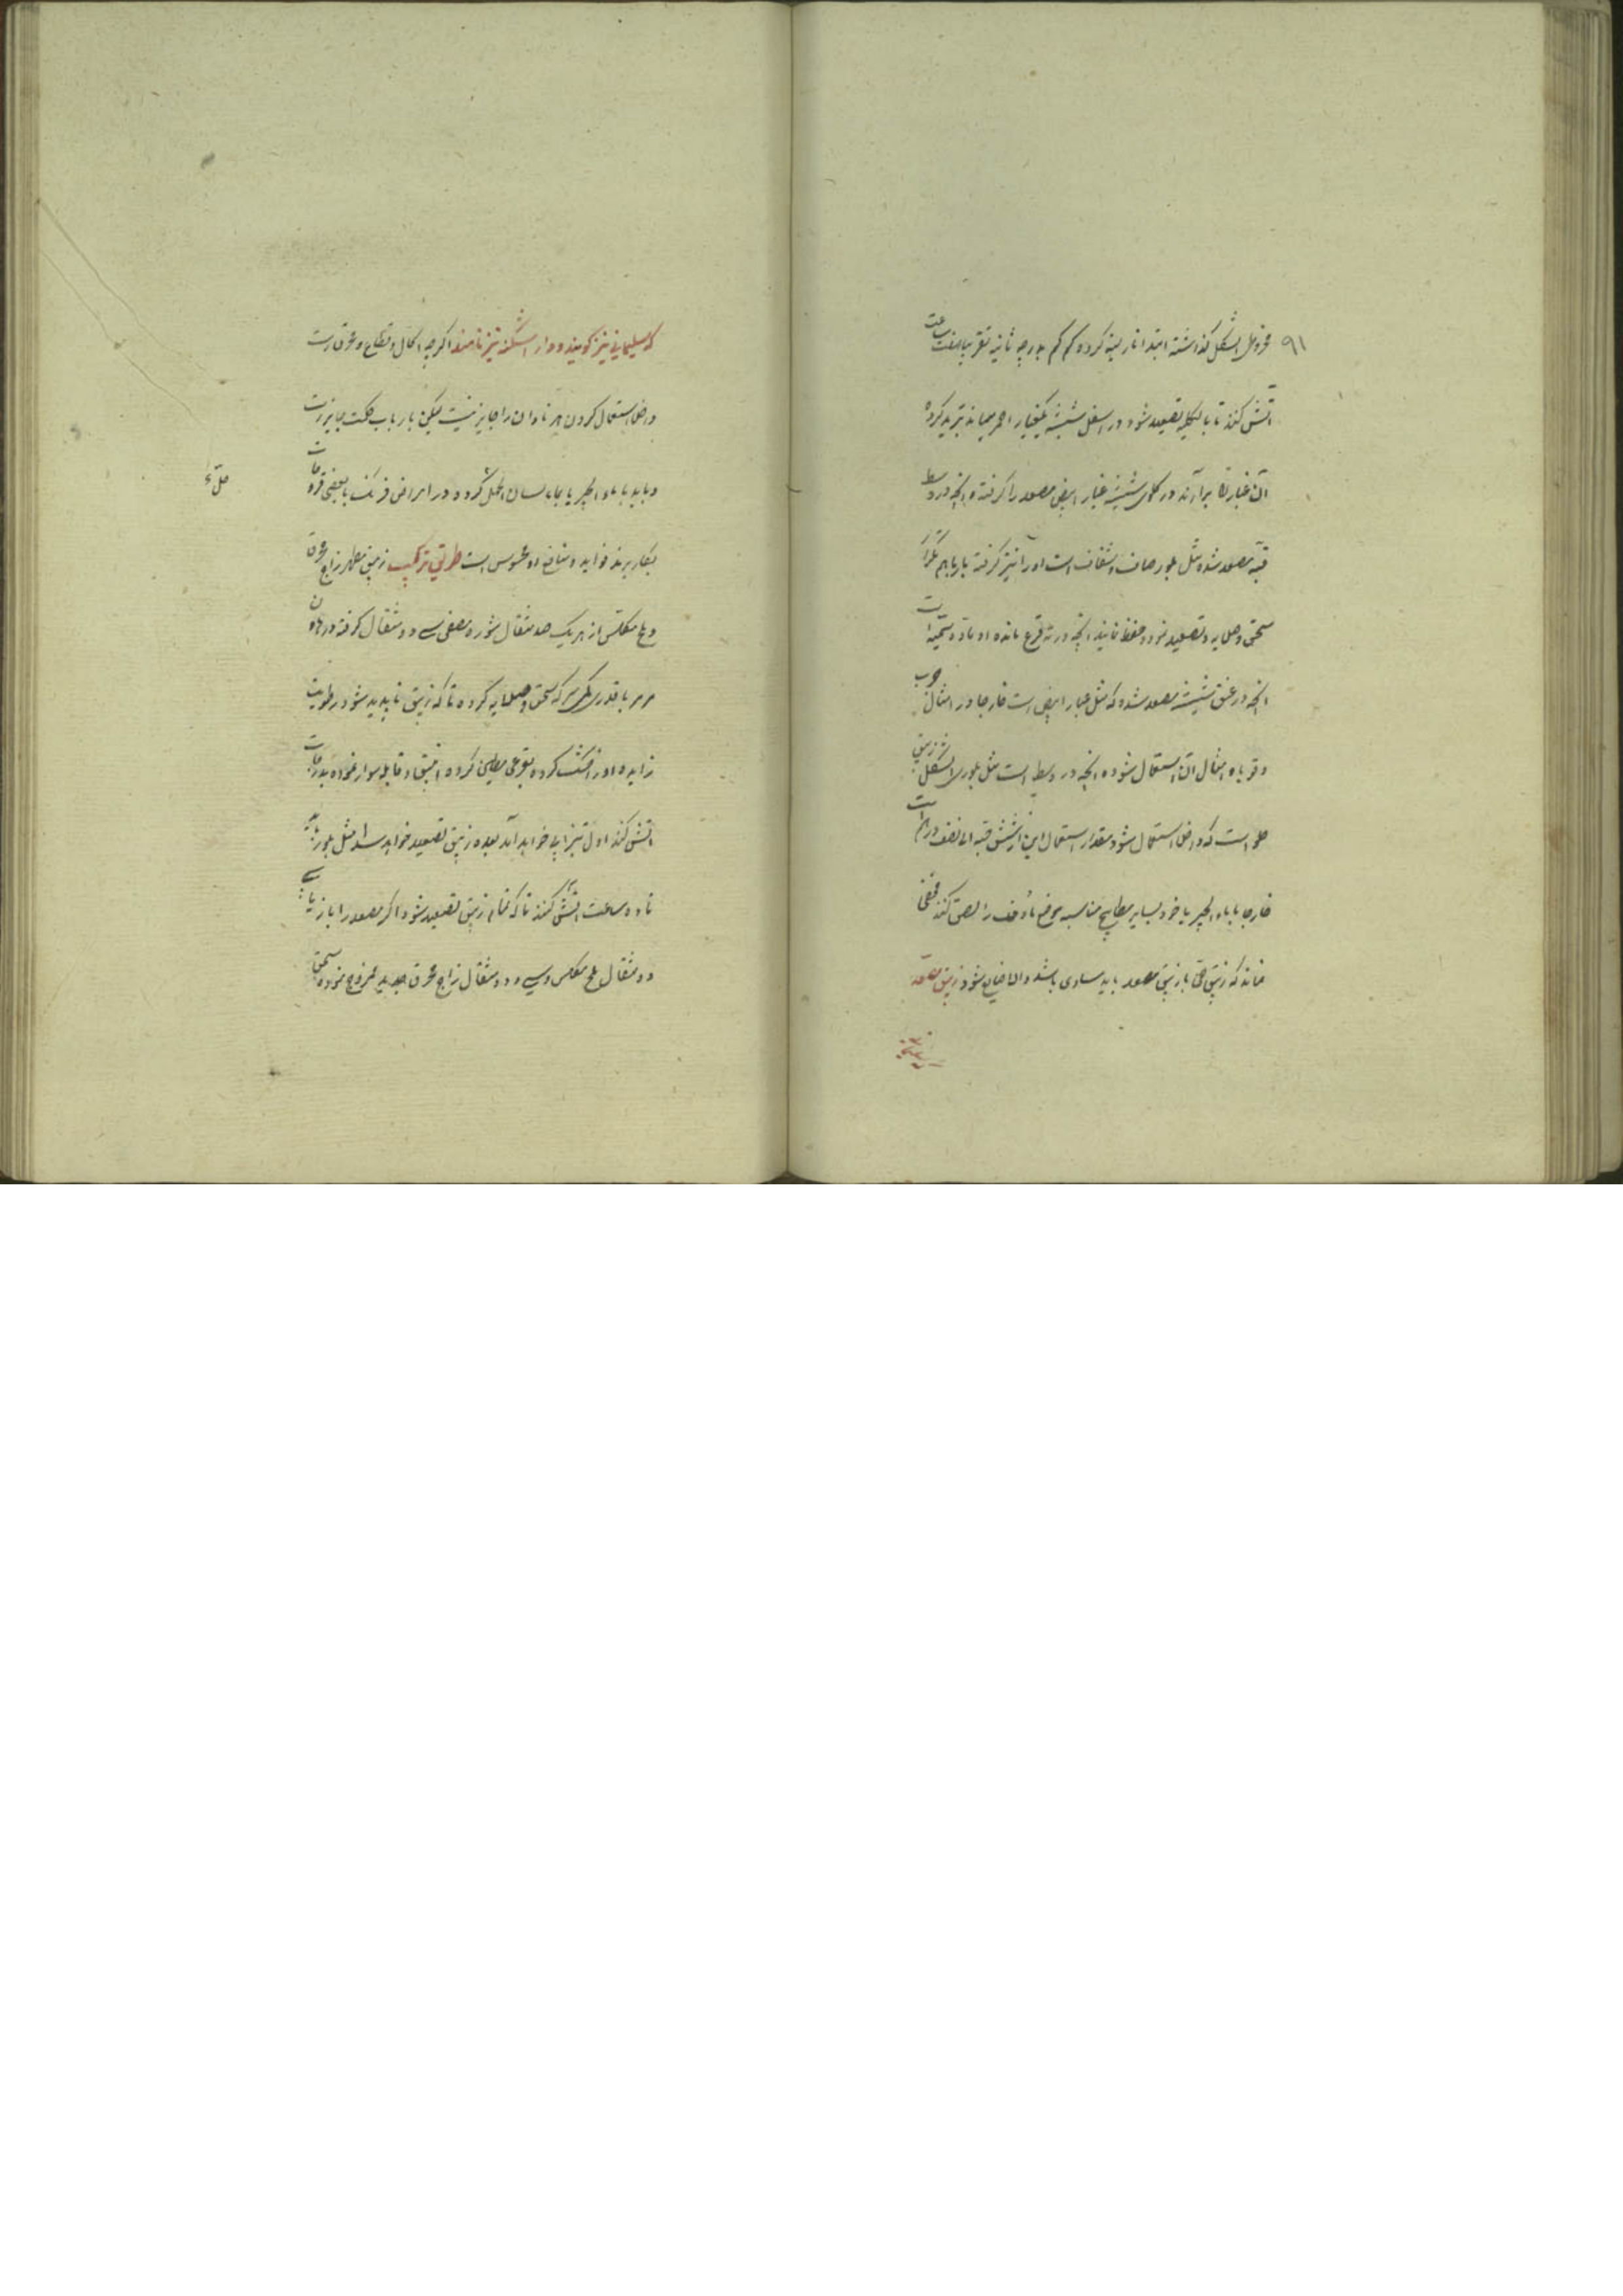 ۹۱
مخروطی الشکل گذاشته ابتدا نار لینه کرده کم کم بدرجه ثانیه تقریبا هفت ساعت
آتش کنند تا بالکلیه تصعید شود در اسفل شیشه یکغبار احمر میماند تبرید کرده
آن غبار را برآرند در گلوی شیشه غبار ابیض مصعد را گرفته و انچه در وسط
قبه مصعد شده مثل بلور صاف و شفاف است او را نیز گرفته باز باهم
سحق وصلایه و تصعید نموده حفظ نمایند انچه در ته قرع مانده او ماده سمیه است
انچه در عنق شیشه مصعد شده که مثل غبار ابیض است خارجا در امثال جرب
و قوبا و امثال آن استعمال شود و انچه در وسط است مثل بلوری الشکل زیبق
حلو است که داخلا استعمال شود مقدار استعمال این از شش قبه الی نصف درهم است
خارجا با ماء الجیر یا خود بسایر مطابیخ مناسبه موضع ماؤف را لصق کند مخفی
نماند که زیبق حی با زیبق مصعد باید مساوی باشد والا ضایع شود زیبق مصعد
که سلیمانی نیز گویند و دار اشکنه نیز نامند اگرچه اکال و قطاع و محرق است
داخلا استعمال کردن هر نادان را جایز نیست لیکن بارباب حکمت جایز است
و باید با ماء الجیر یا بماء لسان الحمل کرده در امراض فرنگ یا بعضی قروحات
بکار برند فواید و منافع او محسوس است طریق ترکیب زیبق مطهر زاج محرق
و ملح مکلس از هریک صد مثقال شوره مصفی سی و دو مثقال گرفته در هاون
مرمر با قدری سرکه سحق وصلایه کرده تا که زیبق ناپدید شود رطوبت
زایده او را خشک کرده بقرعی مطین کرده انبیق و قابله سوار نموده بدرجات
آتش کنند اول تیزابی خواهد آمد بعده زیبق تصعید خواهد شد مثل بلور
تا دو ساعت آتش کنند تا که تمام زیبق تصعید شود اگر مصعد را باز با سی
و دو مثقال ملح مکلس و سی و دو مثقال زاج محرق جدید ممزوج نموده سحق